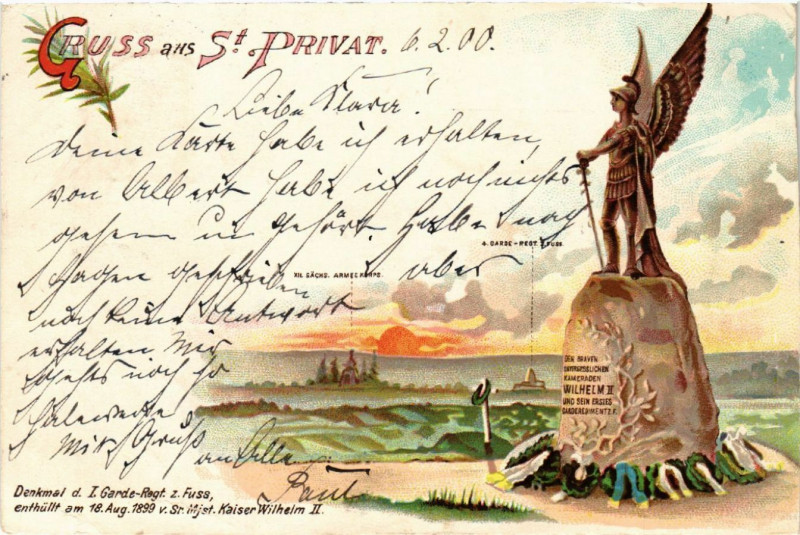 GRUSS aus St. PRIVAT. 6.2.00.
Liebe Klara!
Deine Karte habe ich erhalten,
von Albert habe ich noch nichts
gesehen u gehört. Habe nach
Hagen geschrieben aber
noch keine Antwort
erhalten Mir
gehts noch so
Mit Gruß
an Alle
Paul
XII. SÄCHS. ARMEEKORPS.
4. GARDE-REGT. Z. FUSS.
DEN BRAVEN
UNVERGESSLICHEN
KAMERADEN
WILHELM II
UND SEIN ERSTES
GARDEREGIMENT Z. F.
Denkmal d. I. Garde-Regt. z. Fuss,
enthüllt am 18. Aug. 1899 v. Sr. Mjst. Kaiser Wilhelm II.